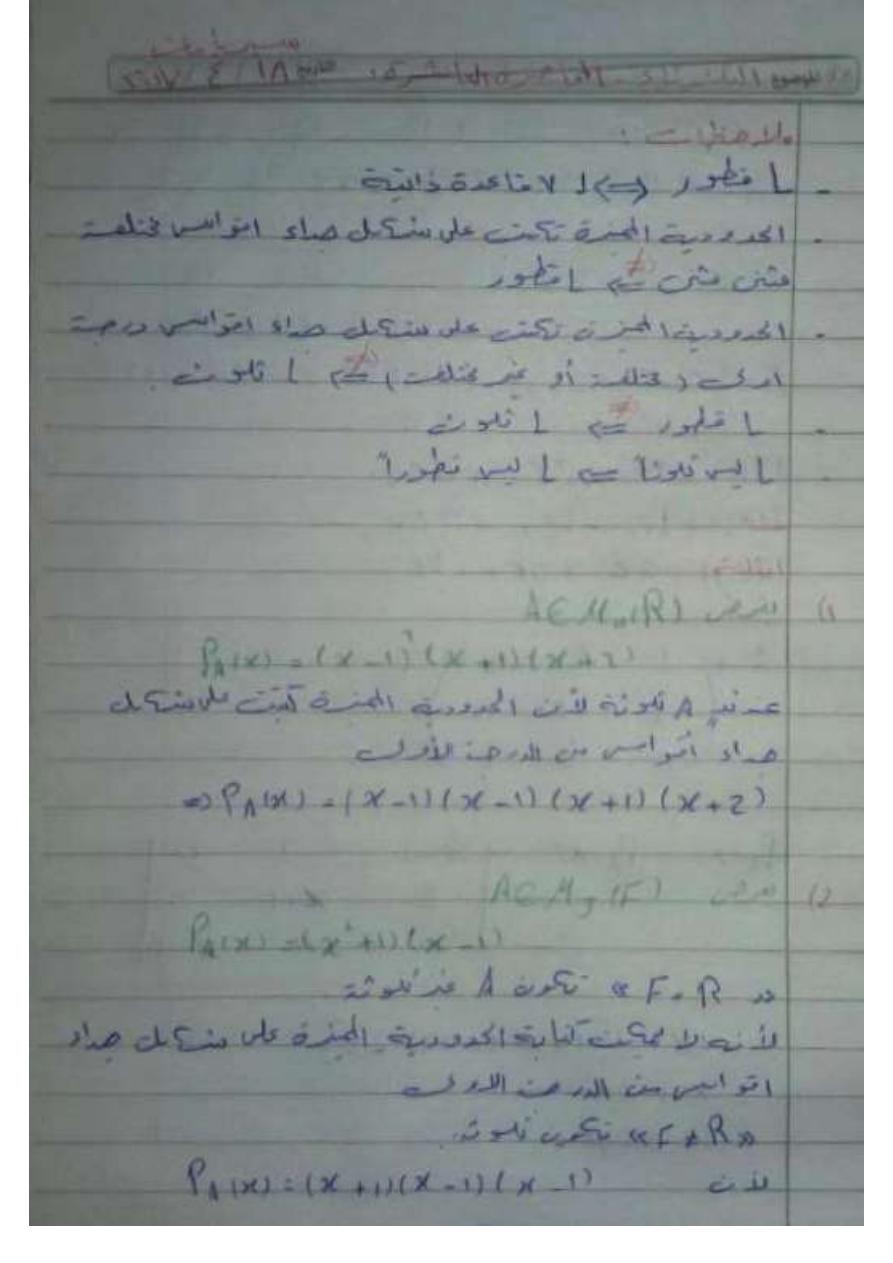 ملاحظات :
- L قطور ⟺ لـ V قاعدة ذاتية
- الحدودية المميزة تكتب على شكل جداء أقواس مختلفة
مثنى مثنى ⟸ L قطور
- الحدودية المميزة تكتب على شكل جداء أقواس درجة
أولى (مختلفة أو غير مختلفة) ⟸ L ثلوث
- L قطور ⟸ L ثلوث
- L ليس ثلوثاً ⟸ L ليس قطوراً
أمثلة:
1) بفرض A∈M (R)
P_A(x) = (x-1)² (x+1)(x+2)
عندئذٍ A ثلوثة لأن الحدودية المميزة كتبت على شكل
جداء أقواس من الدرجة الأولى
⇒ P_A(x) = (x-1)(x-1)(x+1)(x+2)
2) بفرض A∈M₃(F)
P_A(x) = (x²+1)(x-1)
« F=R » تكون A غير ثلوثة
لأنه لا يمكن كتابة الحدودية المميزة على شكل جداء
أقواس من الدرجة الأولى
« F≠R » تكون ثلوثة
لأن P_A(x) = (x+1)(x-1)(x-1)